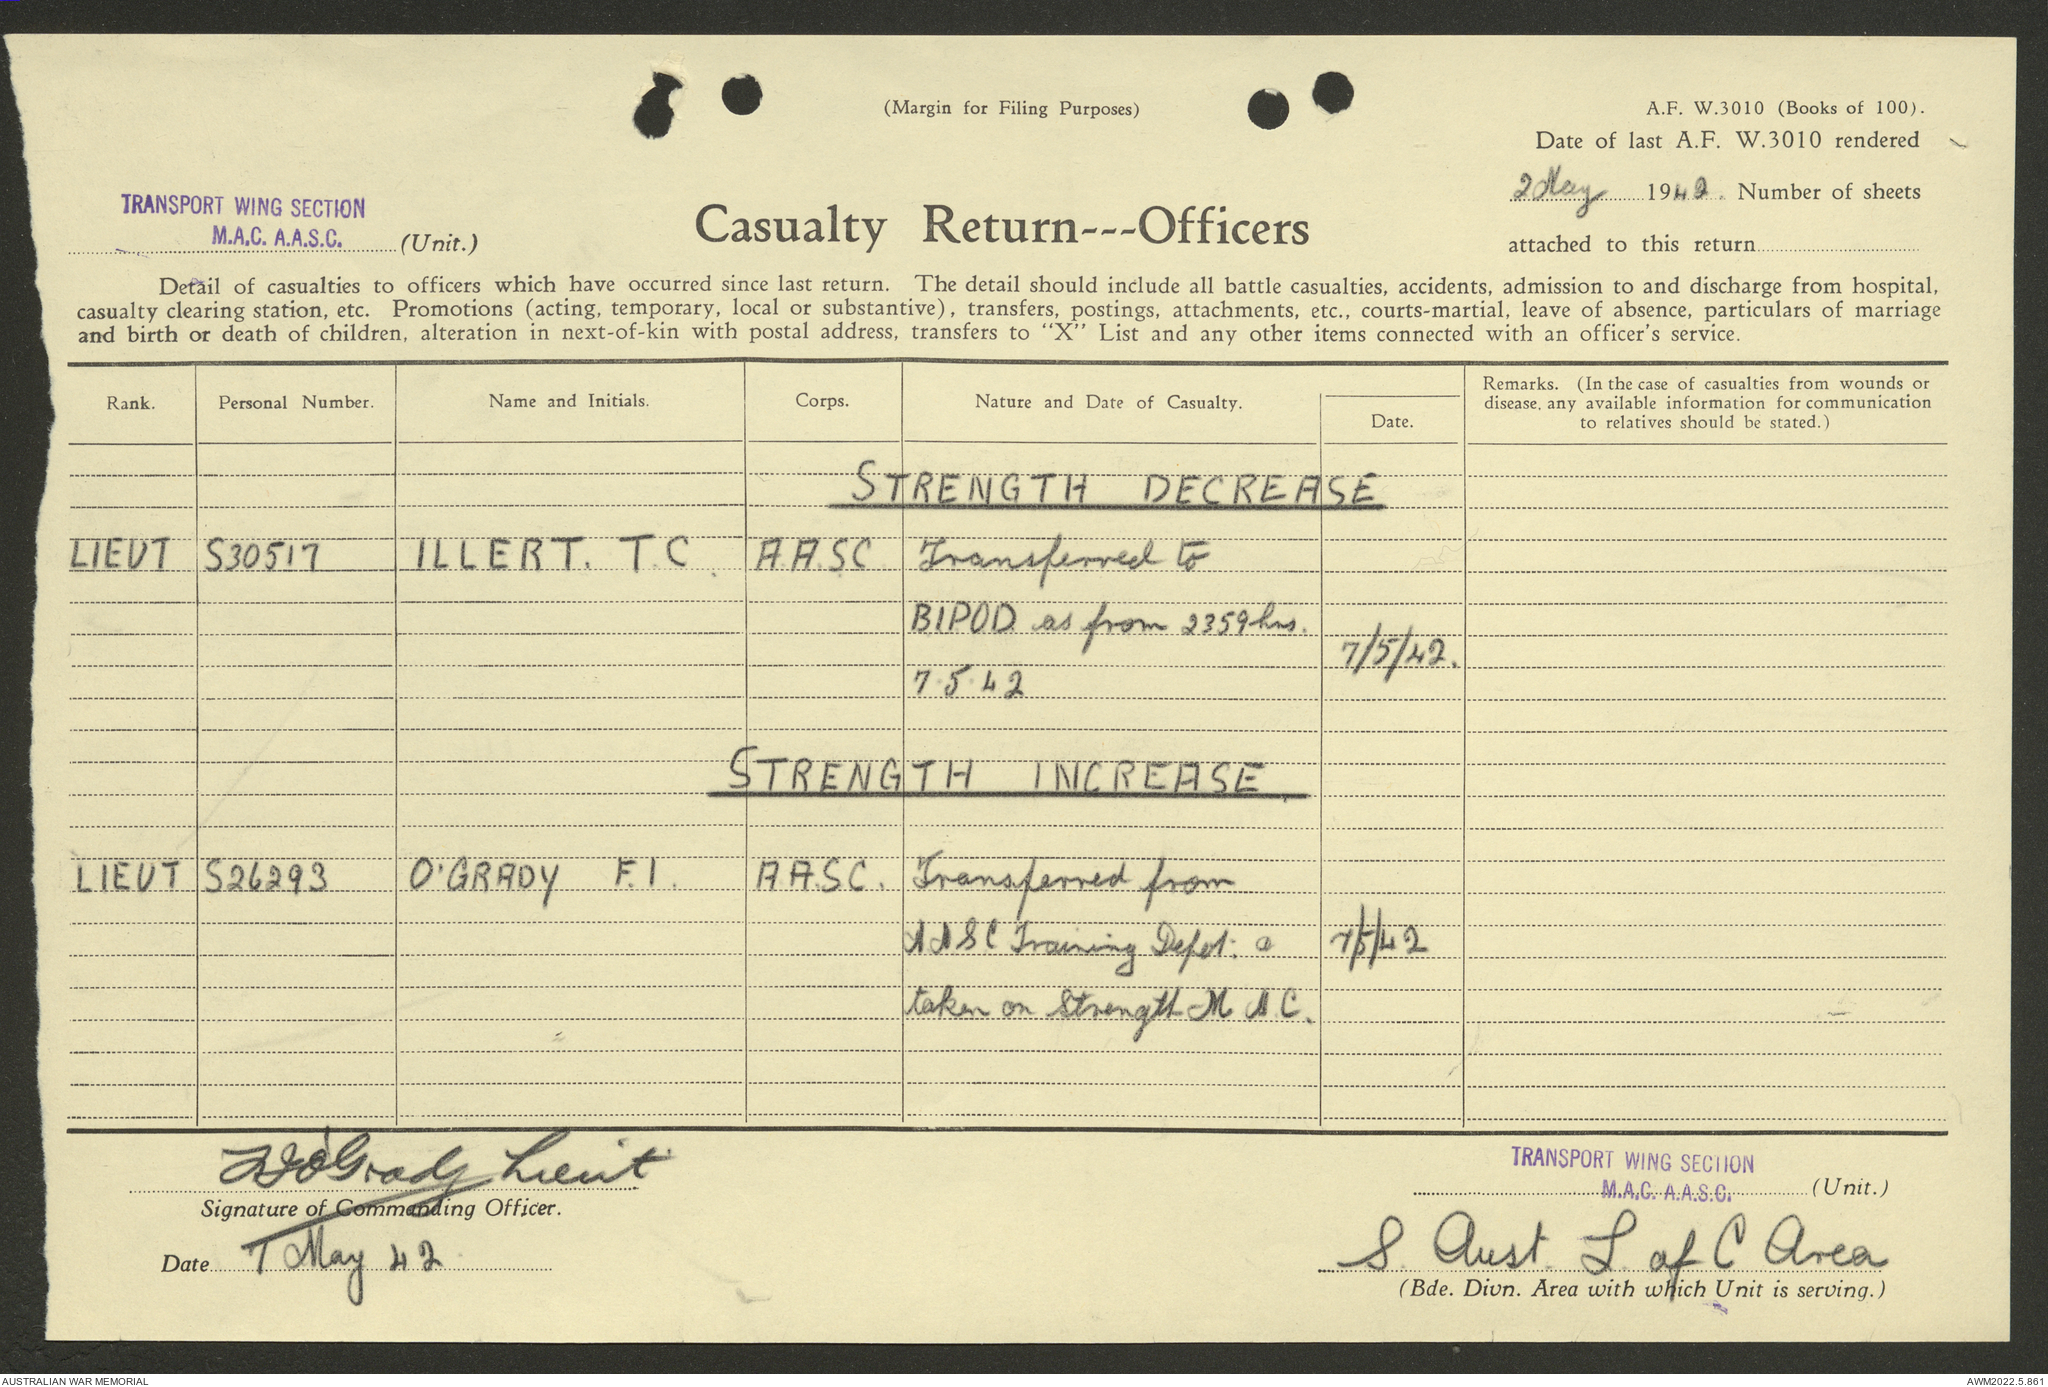 (Margin for Filing Purposes)
A.F. W.3010 (Books of 100).
Date of last A.F. W.3010 rendered
2 May 1942. Number of sheets
attached to this return
TRANSPORT WING SECTION
M.A.C. A.A.S.C. (Unit.)
Casualty Return---Officers
Detail of casualties to officers which have occurred since last return. The detail should include all battle casualties, accidents, admission to and discharge from hospital,
casualty clearing station, etc. Promotions (acting, temporary, local or substantive), transfers, postings, attachments, etc., courts-martial, leave of absence, particulars of marriage
and birth or death of children, alteration in next-of-kin with postal address, transfers to "X" List and any other items connected with an officer's service.
Rank. Personal Number. Name and Initials. Corps. Nature and Date of Casualty. Date.
Remarks. (In the case of casualties from wounds or
disease, any available information for communication
to relatives should be stated.)
STRENGTH DECREASE
LIEUT S30517 ILLERT. T.C. A.A.S.C. Transferred to
BIPOD as from 2359 hrs.
7/5/42.
7.5.42
STRENGTH INCREASE
LIEUT S26293 O'GRADY F.I. A.A.S.C. Transferred from
AASC Training Depot: a 7/5/42
taken on Strength M A.C.
F I O'Grady Lieut
Signature of Commanding Officer.
Date 7 May 42
TRANSPORT WING SECTION
M.A.C. A.A.S.C. (Unit.)
S. Aust. L. of C Area
(Bde. Divn. Area with which Unit is serving.)
AUSTRALIAN WAR MEMORIAL
AWM2022.5.861